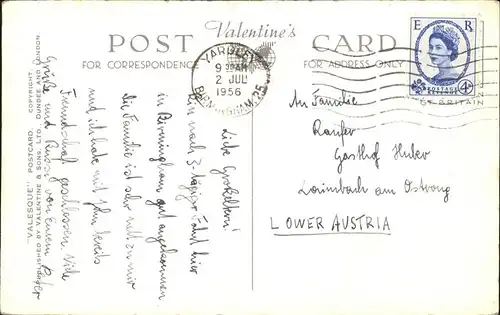 POST CARD
Valentine's
FOR CORRESPONDENCE
FOR ADDRESS ONLY
YARDLEY
9 30AM
2 JUL
1956
BIRMINGHAM. 25
E R
POSTAGE
4D
BRITAIN
Liebe Großeltern!
Bin nach 3-tägiger Fahrt hier
in Birmingham gut angekommen.
Die Familie ist sehr nett zu mir
und ich habe mit John bereits
Freundschaft geschlossen. Viele
Grüße und Bussi von Eurem Peter
An Familie
Gasthof Huber
am Ostrong
LOWER AUSTRIA
"VALESQUE" POSTCARD. COPYRIGHT.
PUBLISHED BY VALENTINE & SONS, LTD. DUNDEE AND LONDON